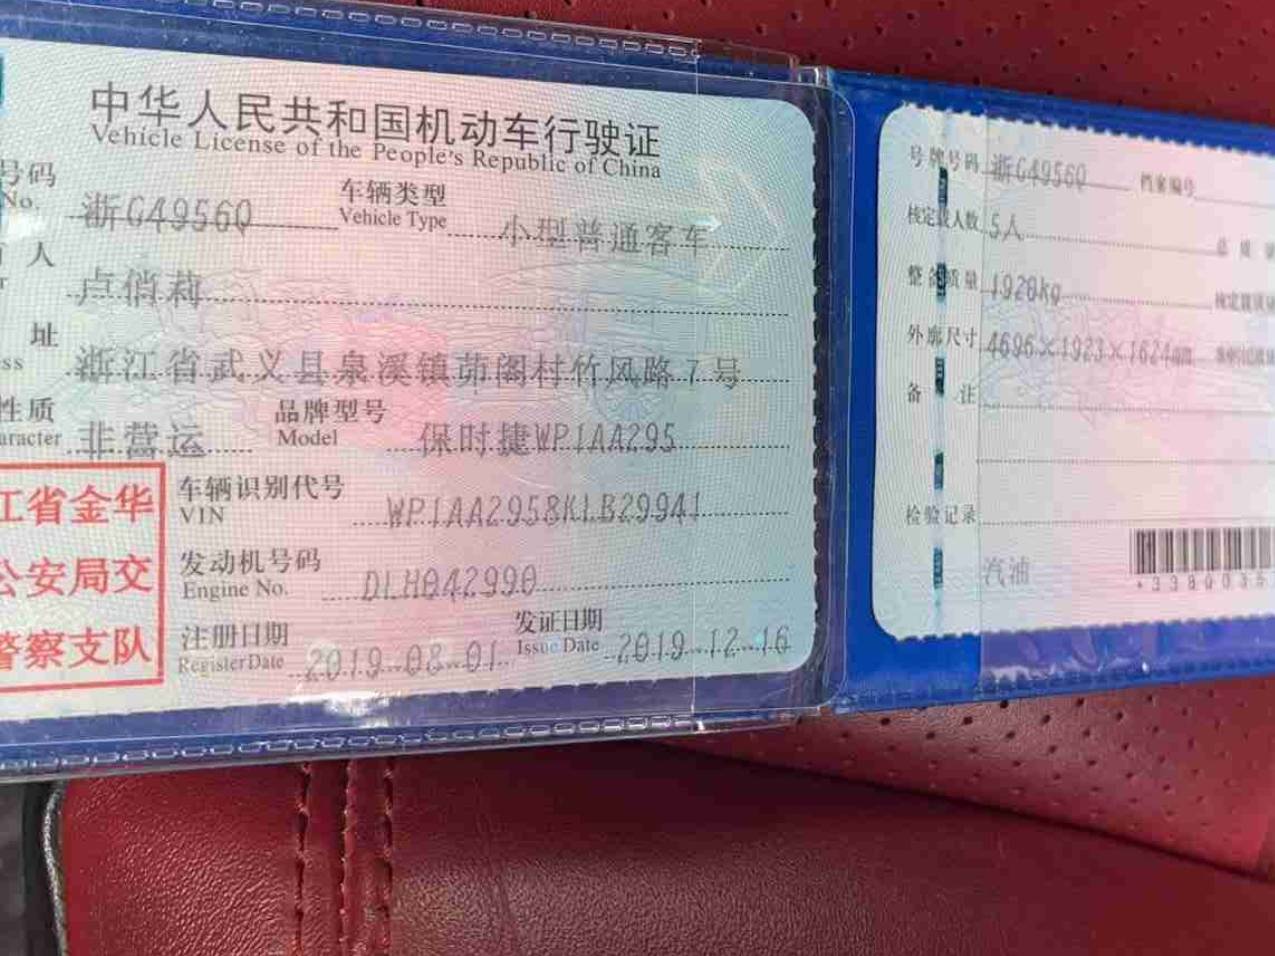 中华人民共和国机动车行驶证
Vehicle License of the People's Republic of China
号码
No.
浙G4956Q
车辆类型
Vehicle Type
小型普通客车
人
卢俏莉
址
ss
浙江省武义县泉溪镇茆阁村竹凤路7号
性质
aracter
非营运
品牌型号
Model
保时捷WP1AA295
江省金华
公安局交
警察支队
车辆识别代号
VIN
WP1AA2958KLB29941
发动机号码
Engine No.
DLH042990
注册日期
Register Date
2019-08-01
发证日期
Issue Date
2019-12-16
号牌号码 浙G4956Q 档案编号
核定载人数 5人
总质
整备质量 1920kg
核定载质
外廓尺寸 4696×1923×1624mm
备注
检验记录
汽油